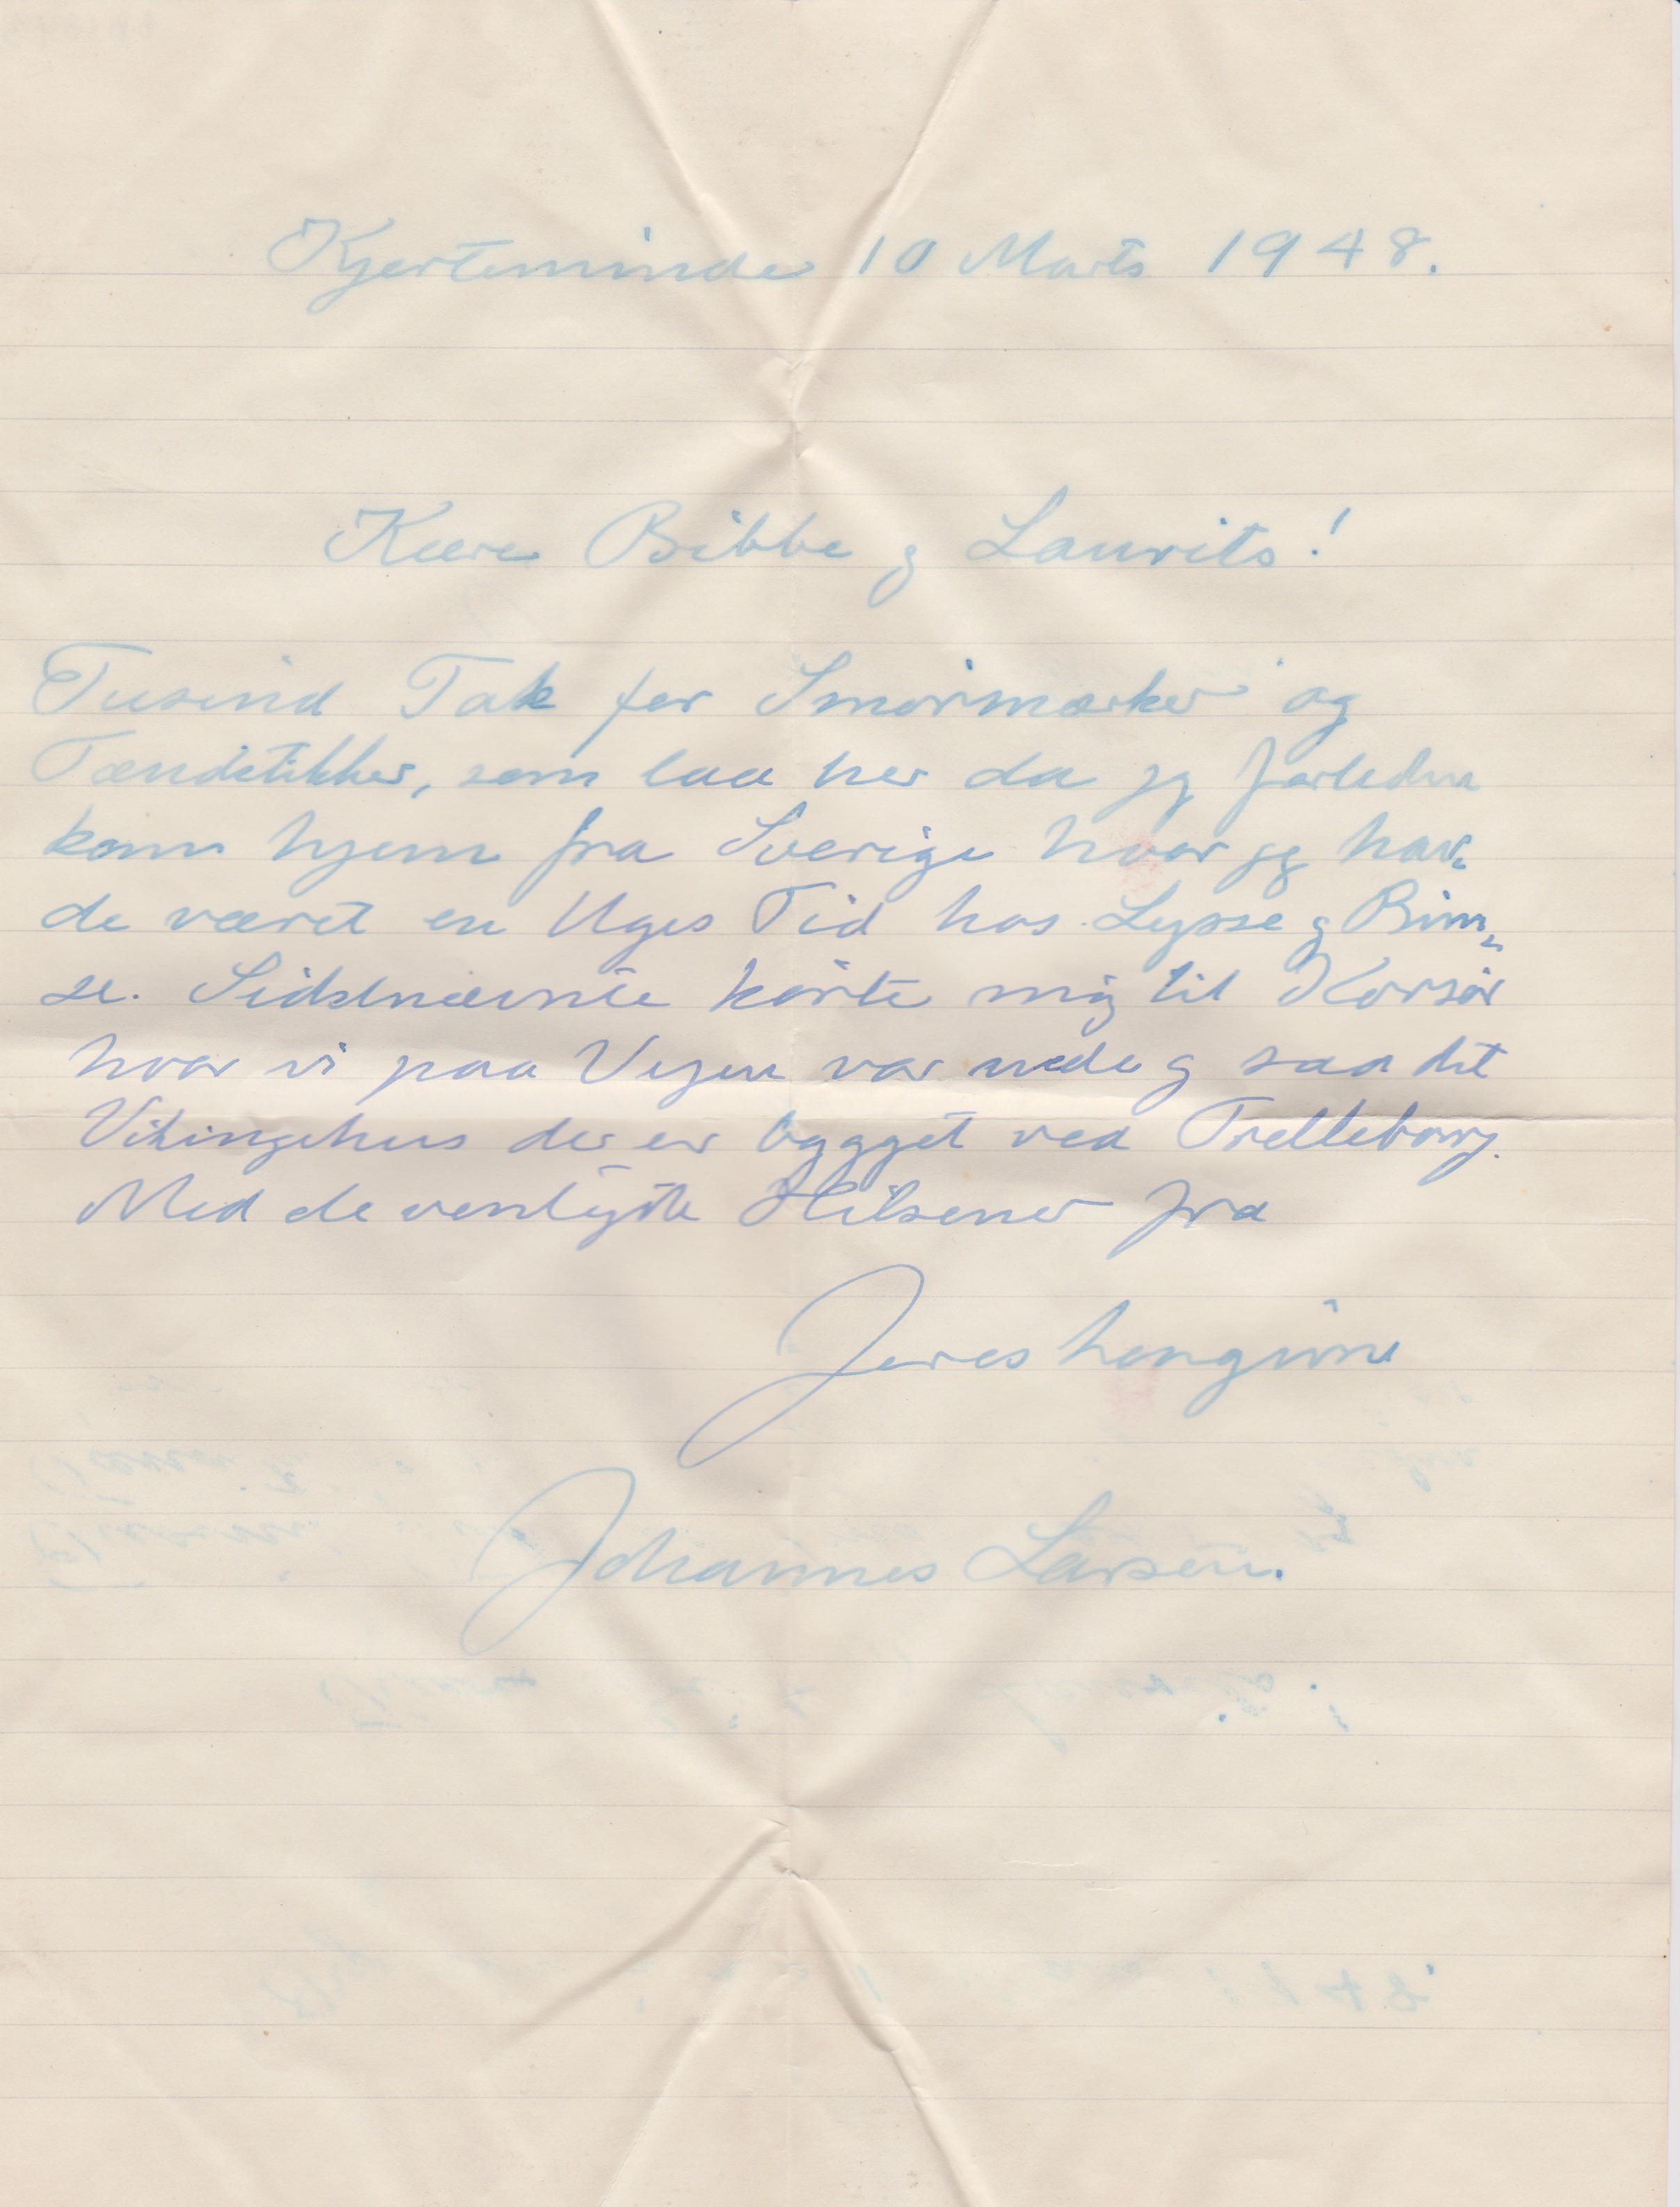 Kjerteminde 10 Marts 1948.
Kære Bibbe og Laurits!
Tusind Tak for Smørmærker og
Tændstikker, som laa her da jeg forleden
kom hjem fra Sverige hvor jeg hav=
de været en Uges Tid hos Lysse og Bim=
se. Sidstnævnte kørte mig til Korsør
hvor vi paa Vejen var nede og saa det
Vikingehus der er bygget ved Trelleborg.
Med de venligste Hilsener fra
Jeres hengivne
Johannes Larsen.